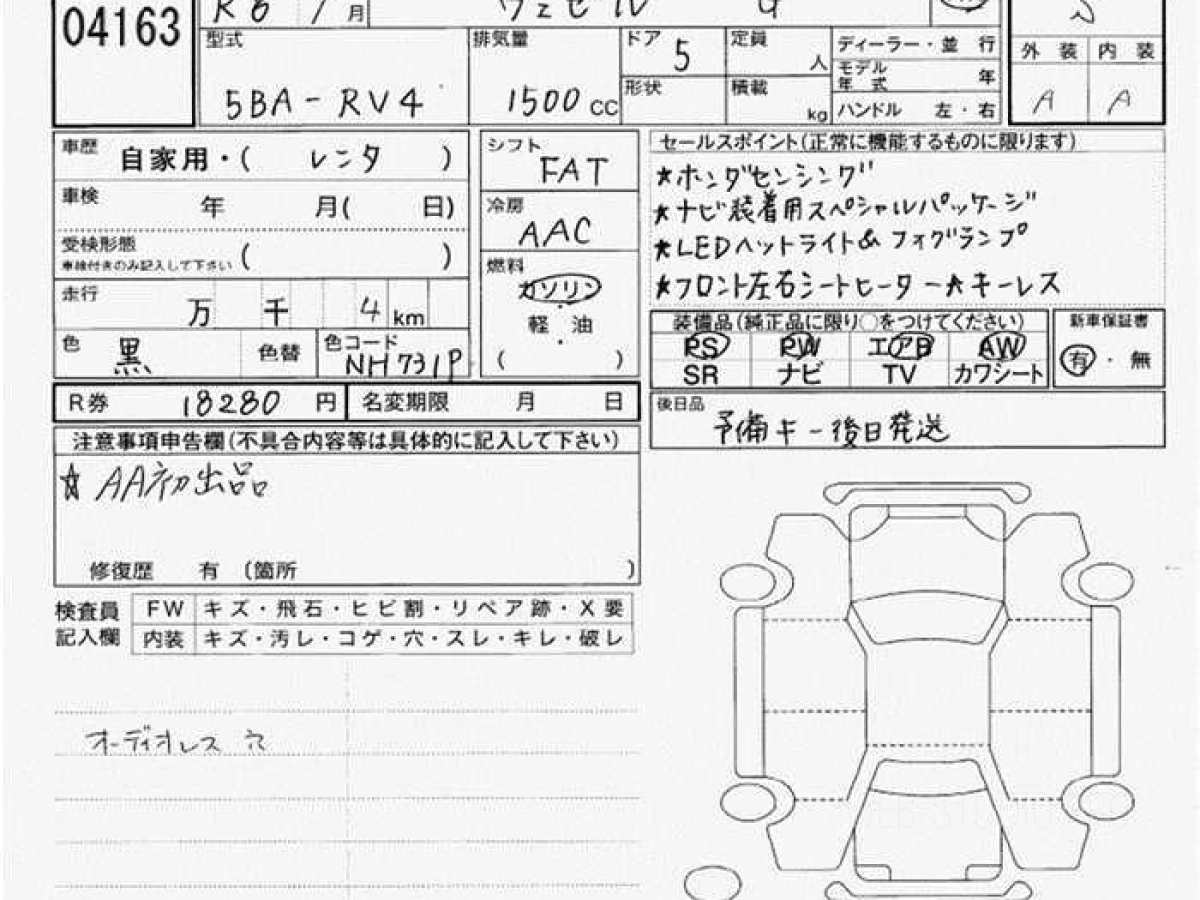 04163
R6 1月 ヴェゼル G
型式 5BA-RV4
排気量 1500 CC
ドア 5
形状
定員 人
積載 kg
ディーラー・並 行
モデル年式 年
ハンドル 左・右
外 装 内 装
A A
車歴 自家用・( レンタ )
車検 年 月( 日)
受検形態 ( )
車検付きのみ記入して下さい
走行 万 千 4 km
色 黒 色替 色コード NH731P
シフト FAT
冷房 AAC
燃料 ガソリン
軽 油
( )
セールスポイント(正常に機能するものに限ります)
★ホンダセンシング
★ナビ装着用スペシャルパッケージ
★LEDヘットライト&フォグランプ
★フロント左右シートヒーター★キーレス
装備品(純正品に限り○をつけてください)
PS PW エアB AW
SR ナビ TV カワシート
新車保証書
有・無
R券 18280 円 名変期限 月 日
後日品 予備キー後日発送
注意事項申告欄(不具合内容等は具体的に記入して下さい)
☆AA初出品
修復歴 有 (箇所 )
検査員記入欄
FW キズ・飛石・ヒビ割・リペア跡・X要
内装 キズ・汚レ・コゲ・穴・スレ・キレ・破レ
オーディオレス 穴